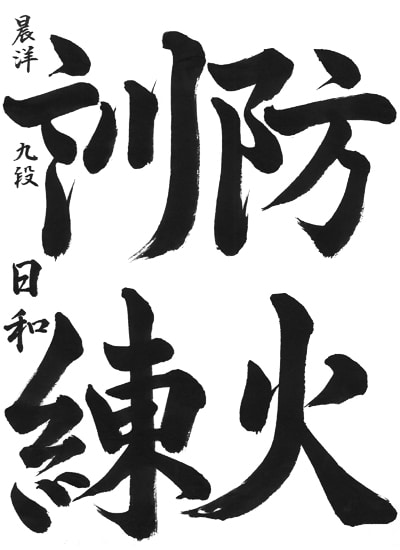 防火
訓練
晨洋 九段
日和